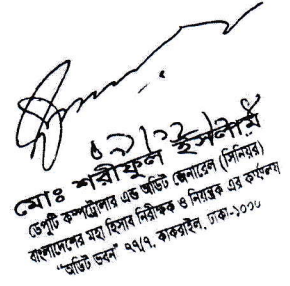 মোঃ শরীফুল ইসলাম
ডেপুটি কম্পট্রোলার এন্ড অডিটর জেনারেল (সিনিয়র)
বাংলাদেশের মহা হিসাব নিরীক্ষক ও নিয়ন্ত্রক এর কার্যালয়
"অডিট ভবন" ৭৭/৭, কাকরাইল, ঢাকা-১০০০